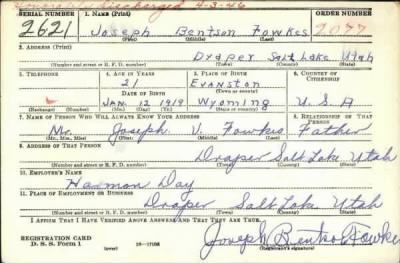 Honorably Discharged 4-3-46
SERIAL NUMBER 1. NAME (Print) ORDER NUMBER
2621 Joseph Bentson Fowkes 2077
(First) (Middle) (Last)
2. ADDRESS (Print)
Draper Salt Lake Utah
(Number and street or R. F. D. number) (Town) (County) (State)
3. TELEPHONE 4. AGE IN YEARS 5. PLACE OF BIRTH 6. COUNTRY OF CITIZENSHIP
21 Evanston
DATE OF BIRTH (Town or county)
Jan. 12 1919 Wyoming U.S.A
(Exchange) (Number) (Mo.) (Day) (Yr.) (State or country)
7. NAME OF PERSON WHO WILL ALWAYS KNOW YOUR ADDRESS 8. RELATIONSHIP OF THAT PERSON
Mr. Joseph V. Fowkes Father
(Mr., Mrs., Miss) (First) (Middle) (Last)
9. ADDRESS OF THAT PERSON
Draper Salt Lake Utah
(Number and street or R. F. D. number) (Town) (County) (State)
10. EMPLOYER'S NAME
Harmon Day
11. PLACE OF EMPLOYMENT OR BUSINESS
Draper Salt Lake Utah
(Number and street or R. F. D. number) (Town) (County) (State)
I AFFIRM THAT I HAVE VERIFIED ABOVE ANSWERS AND THAT THEY ARE TRUE.
REGISTRATION CARD Joseph Bentson Fowkes
D. S. S. Form 1 (over) 16—17105 (Registrant's signature)